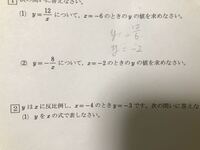 1 次の問いに答えなさい。
(1) y=12/x について、x=-6のときのyの値を求めなさい。
y=-12/6
y=-2
(2) y=-8/x について、x=-2のときのyの値を求めなさい。
2 yはxに反比例し、x=-4のときy=-3です。次の問いに答えな
(1) yをxの式で表しなさい。